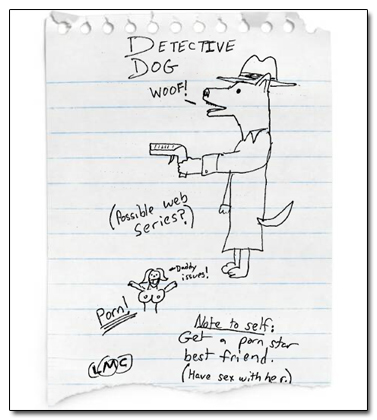 DETECTIVE
DOG
WOOF!
(Possible web
series?)
Daddy
issues!
Porn!
Note to self:
Get a porn star
best friend.
(Have sex with her.)
LMC